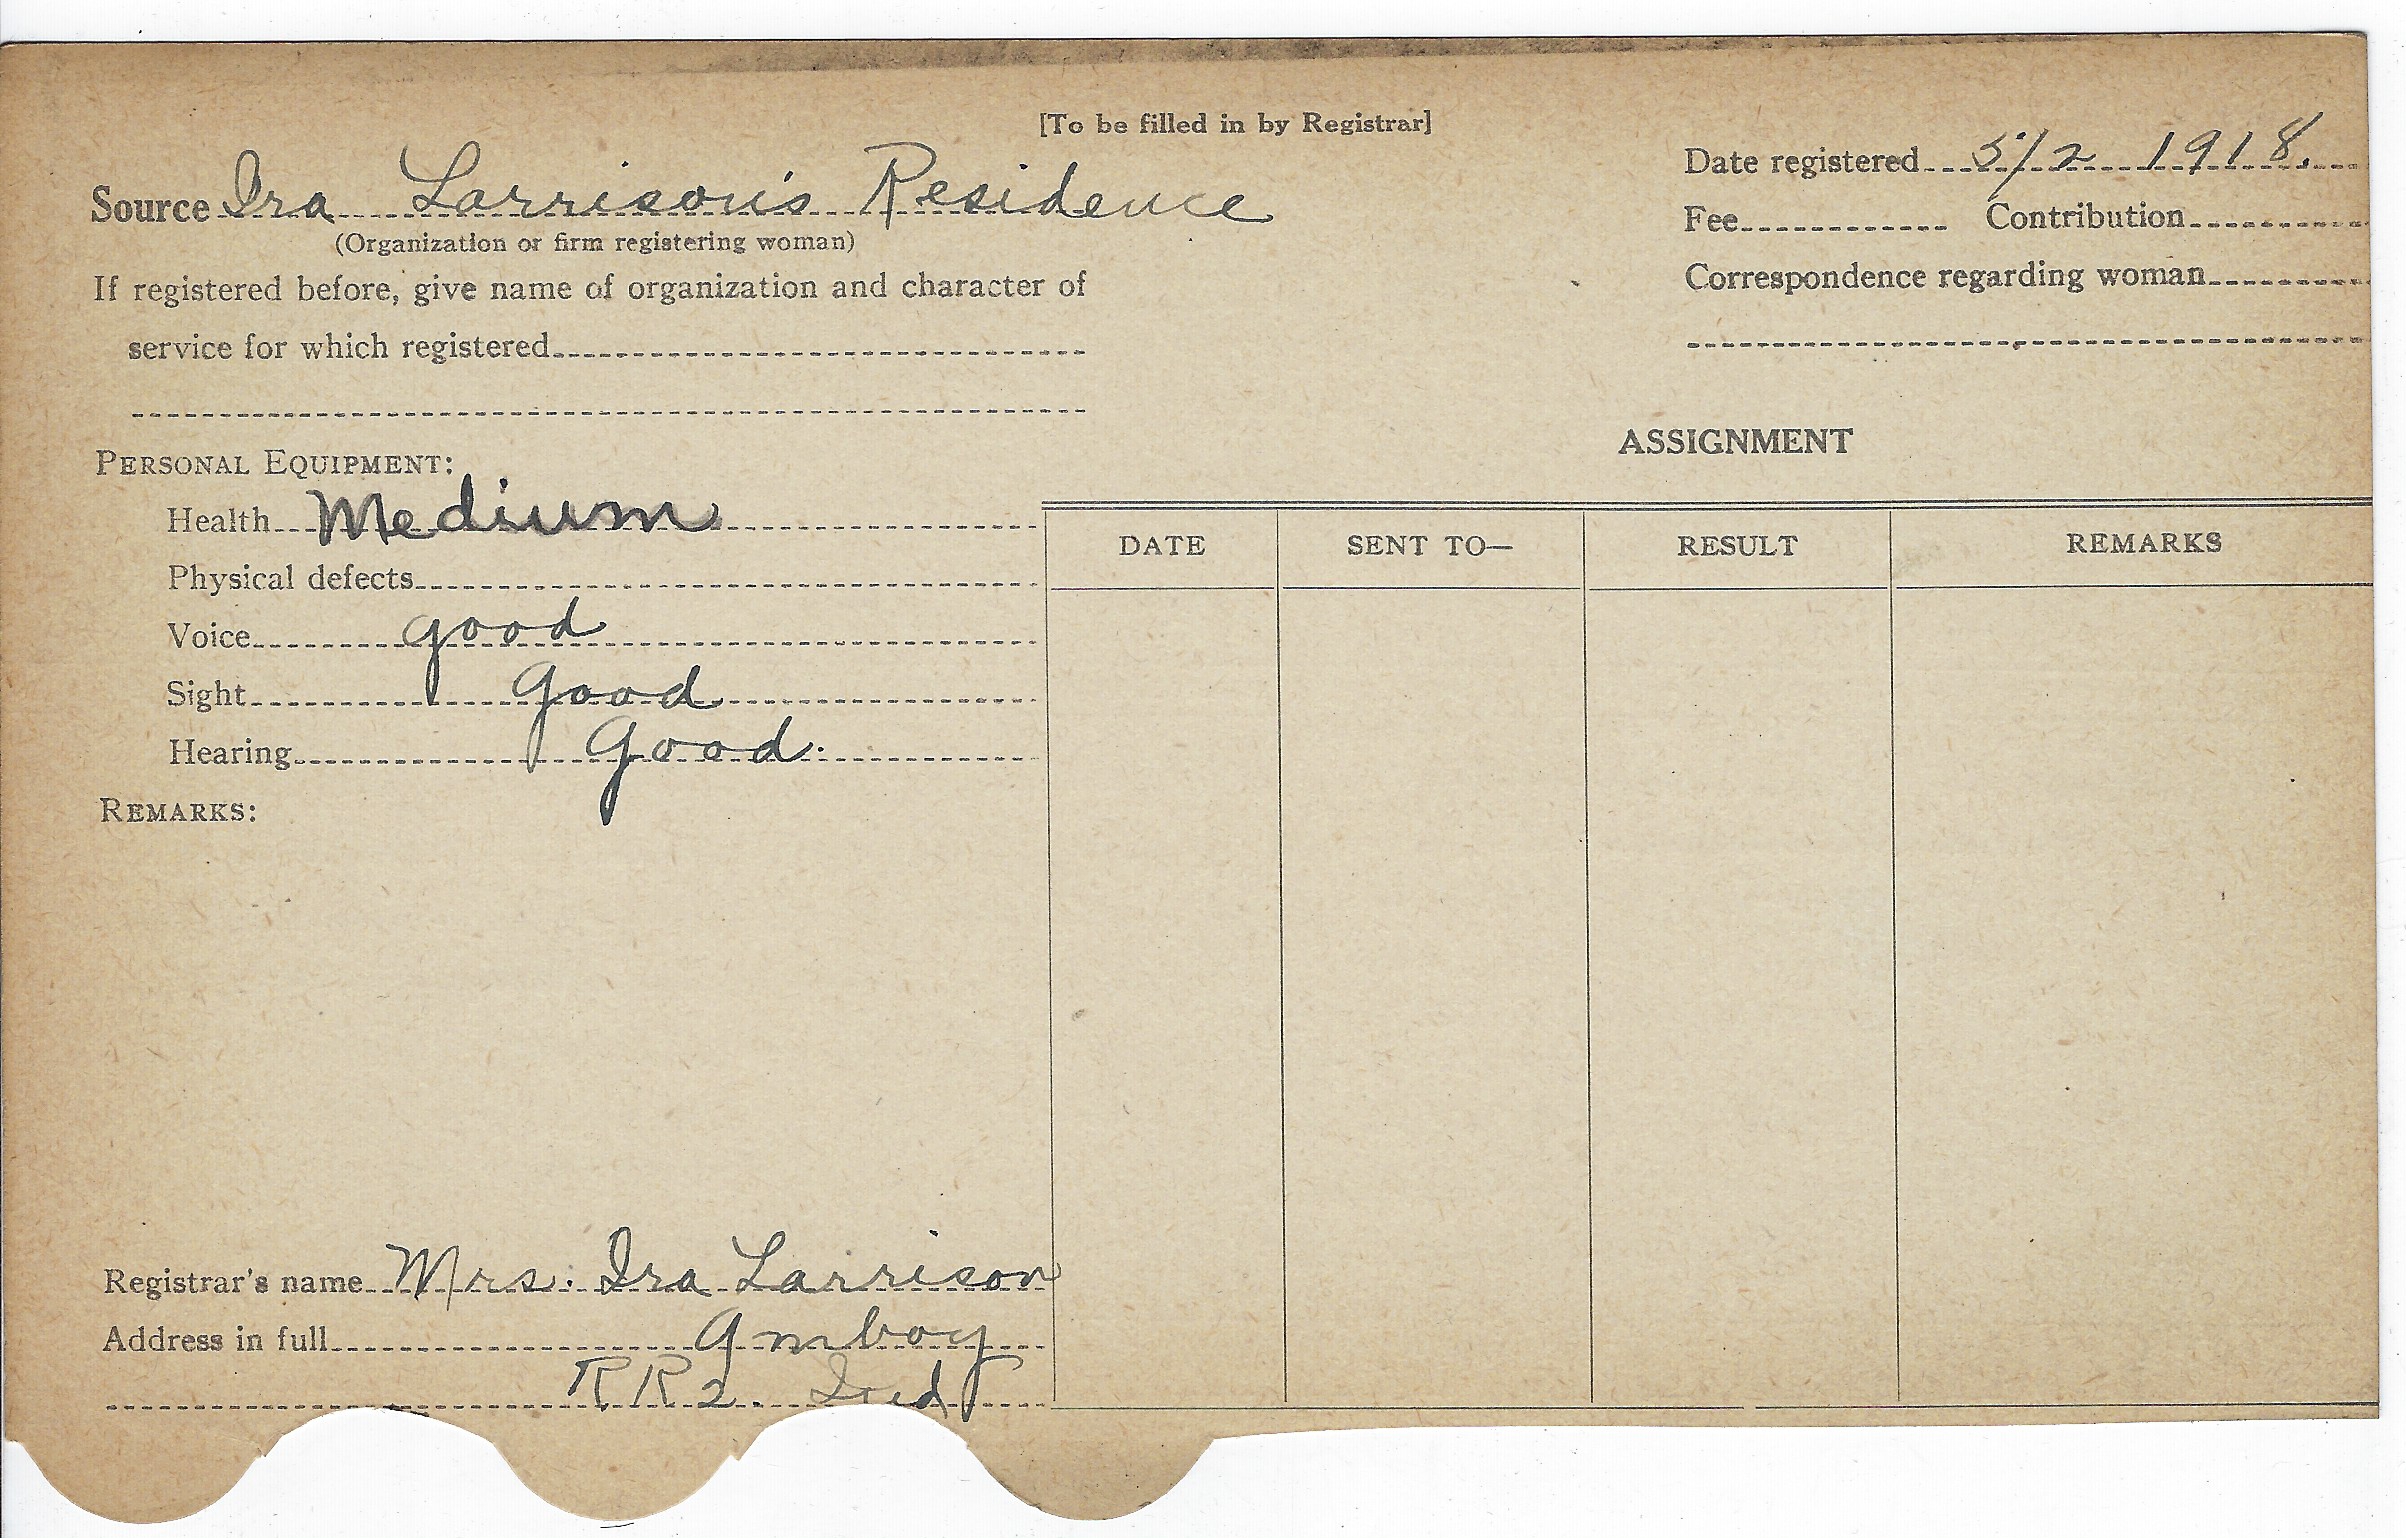 [To be filled in by Registrar]
Source Ira Larrison's Residence
(Organization or firm registering woman)
If registered before, give name of organization and character of
service for which registered
Date registered 5/2 1918.
Fee Contribution
Correspondence regarding woman
PERSONAL EQUIPMENT:
Health Medium
Physical defects
Voice good
Sight good
Hearing Good.
REMARKS:
ASSIGNMENT
DATE SENT TO— RESULT REMARKS
Registrar's name Mrs. Ira Larrison
Address in full Amboy
RR2. Ind